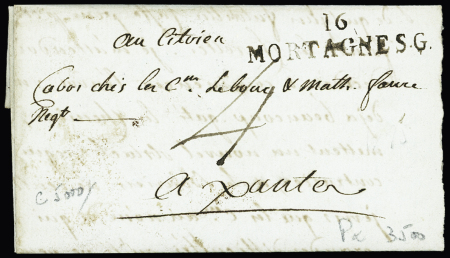 16
MORTAGNE S.G.
Au Citoien
Cabos chés les C.en Lebourg & Math. faure
Negt
4
a xantes
C 5000f
Px 3500